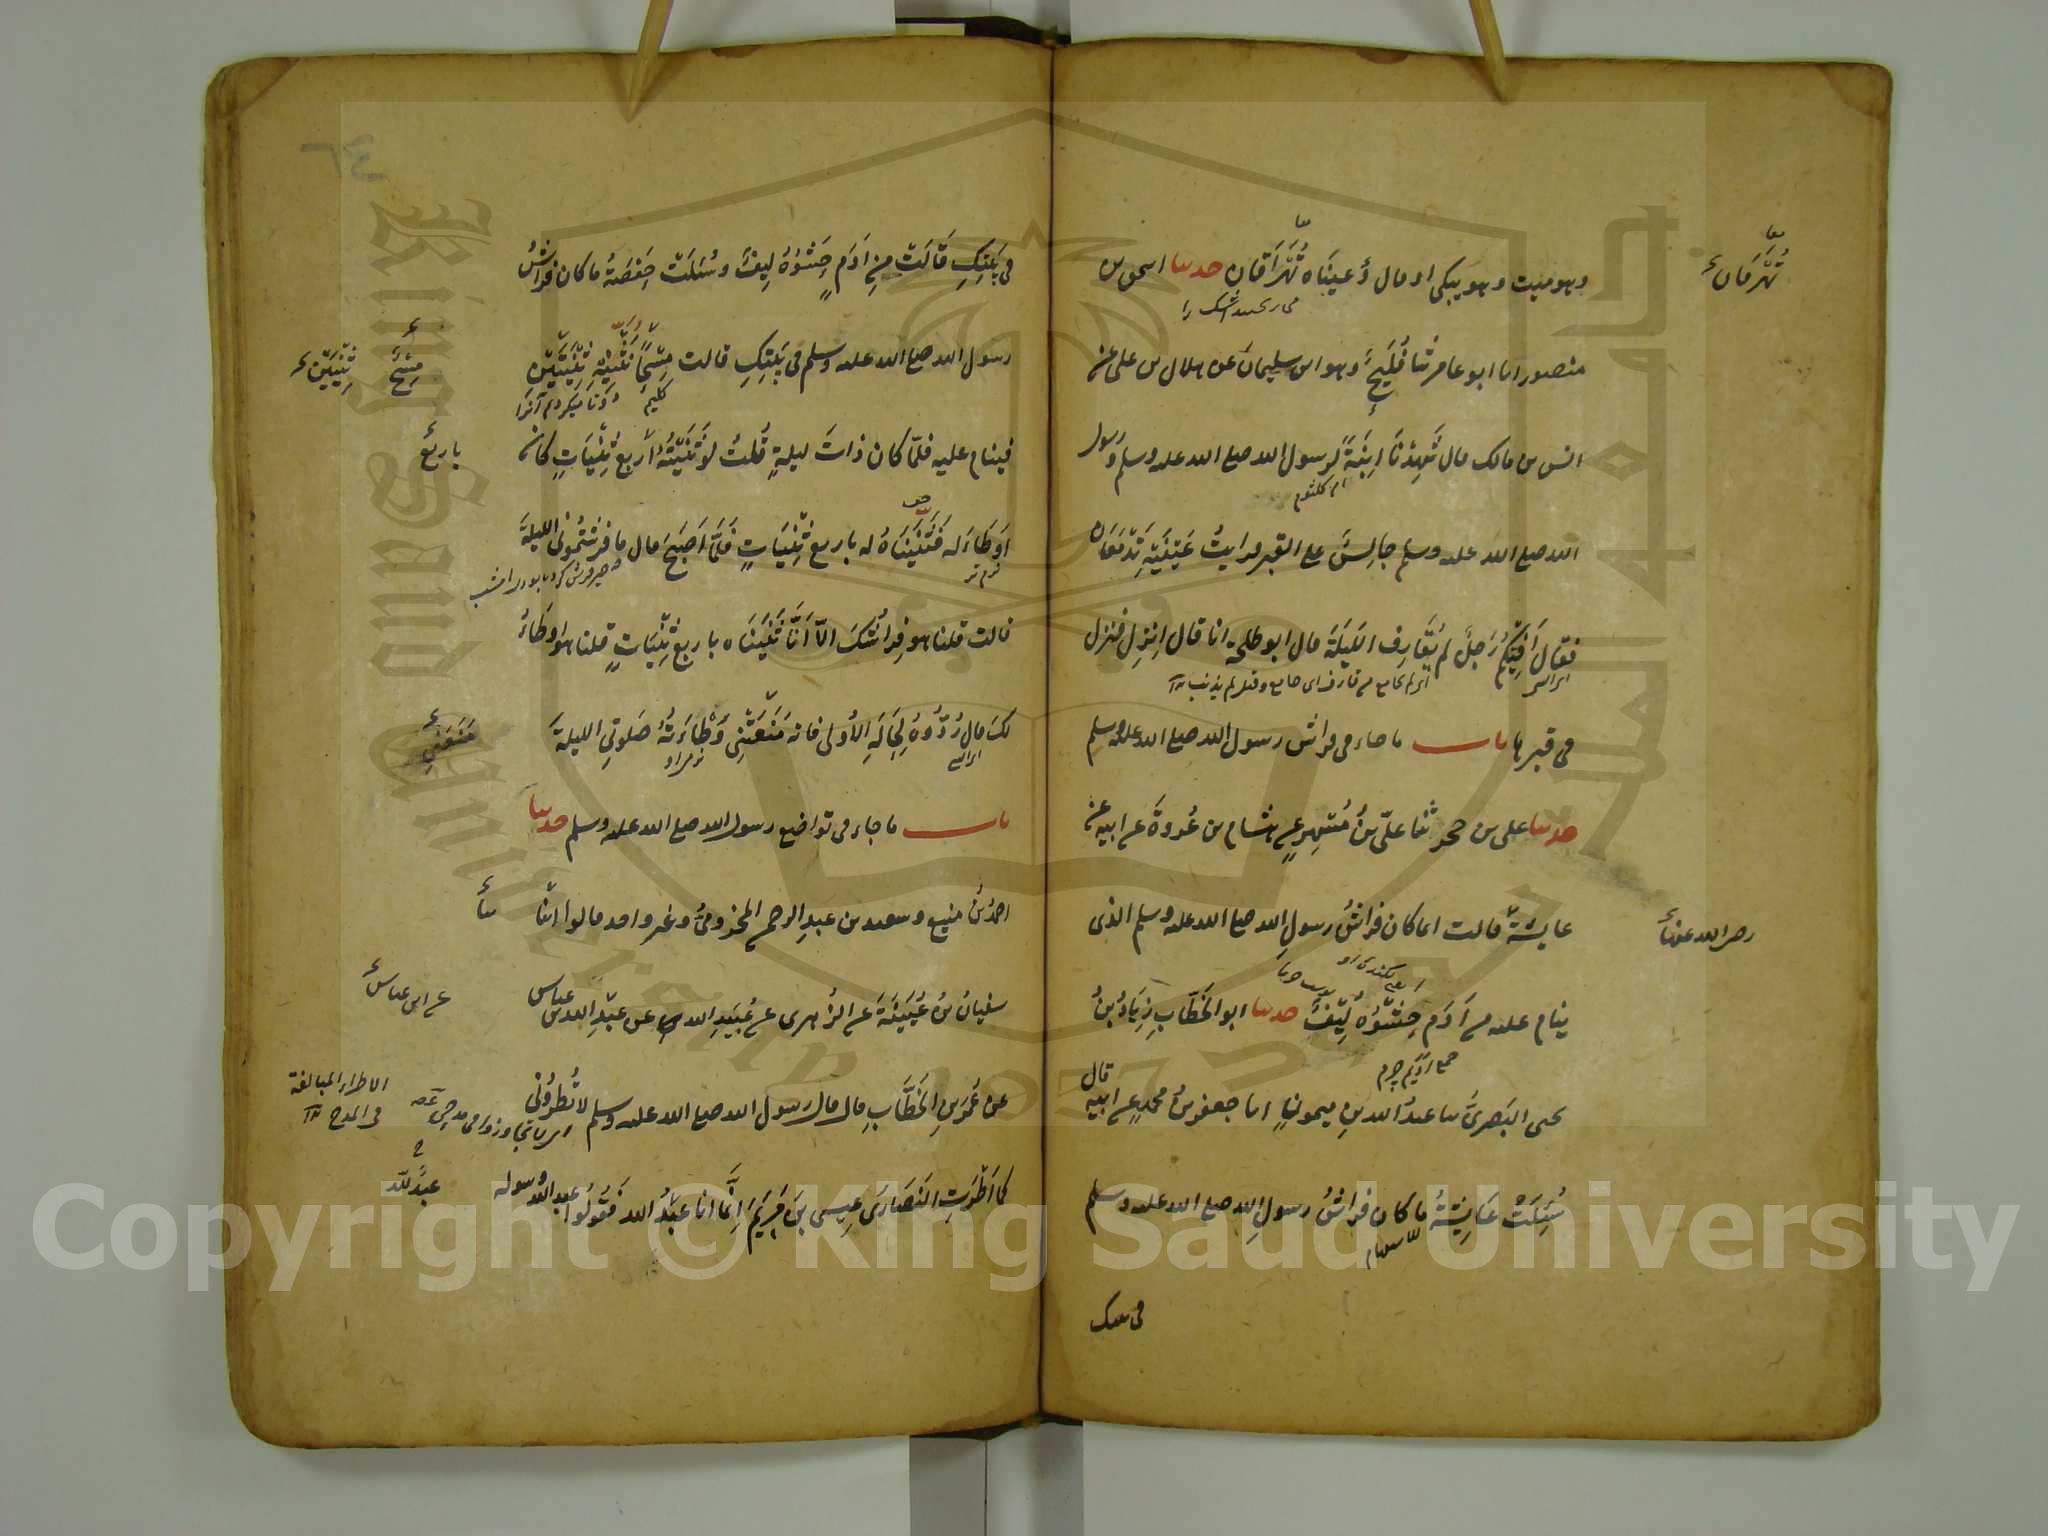 وهو ميت وهو يبكي او قال وَعيناه تُهَرَاقان حدثنا اسحق بن
تُهَرَقان
منصور انا ابو عامر ثنا فُلَيحٌ وهو ابن سليمان عن هلال بن علي عن
انس بن مالك قال شَهِدْنَا اِبنَةً لرسول الله صلى الله عليه وسلم ورسول
ام كلثوم
الله صلى الله عليه وسلم جالِسٌ على القبر فرايتُ عَيْنَيْهِ تَدْمَعَان
فقال اَفِيْكُمْ رَجلٌ لم يُقَارِف اللَيلَةَ قال ابو طلحة انا قال اِنْزِل فنزل
في قبرها باب ما جاء في فراش رسول الله صلى الله عليه وسلم
حدثنا علي بن حجر ثنا عليّ بنُ مُسْهِرٍ عن هشام بن عُروةَ عن ابيه عن
عايشة قالت انما كان فراشُ رسولِ الله صلى الله عليه وسلم الذي
رضي الله عنها
ينام عليه من اَدَم حَشْوُهُ لِيْفٌ حدثنا ابو الخَطّابِ زِيَادُ بنُ
جمع اديم چرم
يحيى البَصريُّ ثنا عبدُ الله بن ميمونٍ انا جعفر بنُ محمدٍ عن ابيه قال
سُئِلَتْ عَايِشَةُ ما كان فراشُ رسولِ الله صلى الله عليه وسلم
في بيتك
٦٤
في بَيْتِكِ قَالَتْ مِنْ اَدَمٍ حَشْوُهُ لِيفٌ وسُئِلَتْ حَفْصَةُ ما كان فراشُ
رسول الله صلى الله عليه وسلم في بَيْتِكِ قالت مِسْحًا نَثْنِيْهِ ثِنْيَتَيْنِ
مِسْحٌ
ثِنْيَيْنِ
كليم
فينام عليه فلمّا كان ذاتَ ليلةٍ قُلتُ لو ثَنَيْتُهُ اَربعَ ثِنْيَاتٍ كان
باربع
اَوْطَاءَ لَه فَثَنَيْنَاهُ له باربع ثِنْيَاتٍ فَلمَّا اَصبَحَ قال ما فرَشتُموني الليلةَ
نرم تر
قالت قلنا هو فِراشُكَ الاّ اَنَّا ثَنَيْنَاه باربع ثِنْيَاتٍ قلنا هو اوطَاءُ
لك قال رُدُّوهُ لِحَالَهِ الاُولى فانه مَنَعَتْنِي وَطْاءَتُهُ صَلوتي الليلةَ
مَنَعَنِي
باب ما جاء في تواضع رسول الله صلى الله عليه وسلم حدثنا
احمدُ بنُ منيع وسعيد بن عبدِ الرحمن المخزوميُّ وغير واحد قالوا انا
ثنا
سفيانُ بنُ عُيَيْنَةَ عن الزُهري عن عُبَيدِ الله عن عَبْدِ الله بن عباس
عن ابن عباس
عن عُمرَ بنِ الخَطَّابِ قال قال رسول الله صلى الله عليه وسلم لا تُطْرُوني
الاطراء المبالغة
في المدح
كما اَطْرَتِ النَصَارىَ عِيسى بنَ مَريَمَ اِنَّمَا انا عَبْدُ الله فَقُولُوا عبد الله ورسوله
عبدُ لله
Copyright © King Saud University
King Saud University
1957